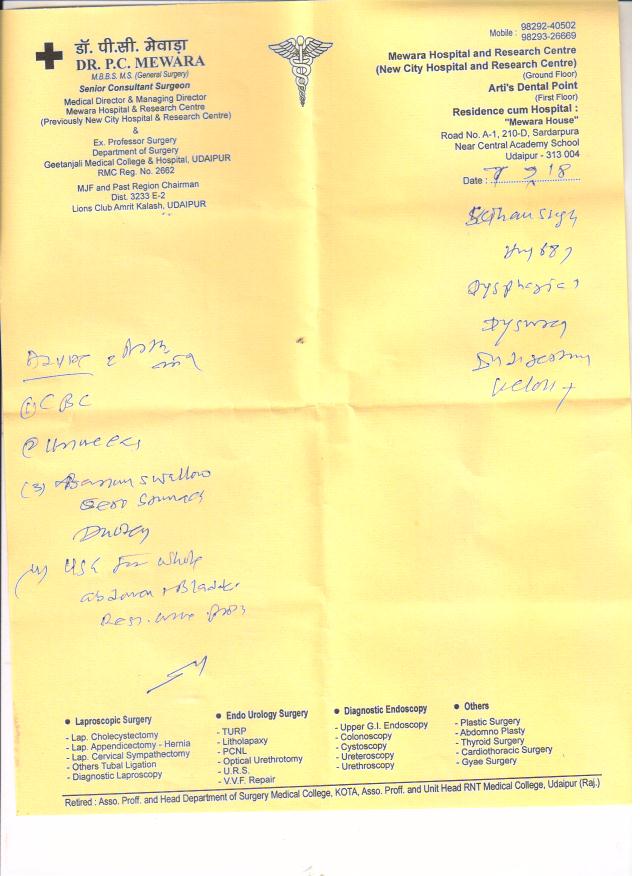 Mobile : 98292-40502
98293-26669
डॉ. पी.सी. मेवाड़ा
DR. P.C. MEWARA
M.B.B.S. M.S. (General Surgery)
Senior Consultant Surgeon
Medical Director & Managing Director
Mewara Hospital & Research Centre
(Previously New City Hospital & Research Centre)
&
Ex. Professor Surgery
Department of Surgery
Geetanjali Medical College & Hospital, UDAIPUR
RMC Reg. No. 2662
MJF and Past Region Chairman
Dist. 3233 E-2
Lions Club Amrit Kalash, UDAIPUR
Mewara Hospital and Research Centre
(New City Hospital and Research Centre)
(Ground Floor)
Arti's Dental Point
(First Floor)
Residence cum Hospital :
"Mewara House"
Road No. A-1, 210-D, Sardarpura
Near Central Academy School
Udaipur - 313 004
Date :
Dysphagia
(1) CBC
(3) Barium swellow
(4) USG For whole
• Laproscopic Surgery
- Lap. Cholecystectomy
- Lap. Appendicectomy - Hernia
- Lap. Cervical Sympathectomy
- Others Tubal Ligation
- Diagnostic Laproscopy
• Endo Urology Surgery
- TURP
- Litholapaxy
- PCNL
- Optical Urethrotomy
- U.R.S.
- V.V.F. Repair
• Diagnostic Endoscopy
- Upper G.I. Endoscopy
- Colonoscopy
- Cystoscopy
- Ureteroscopy
- Urethroscopy
• Others
- Plastic Surgery
- Abdomno Plasty
- Thyroid Surgery
- Cardiothoracic Surgery
- Gyae Surgery
Retired : Asso. Proff. and Head Department of Surgery Medical College, KOTA, Asso. Proff. and Unit Head RNT Medical College, Udaipur (Raj.)